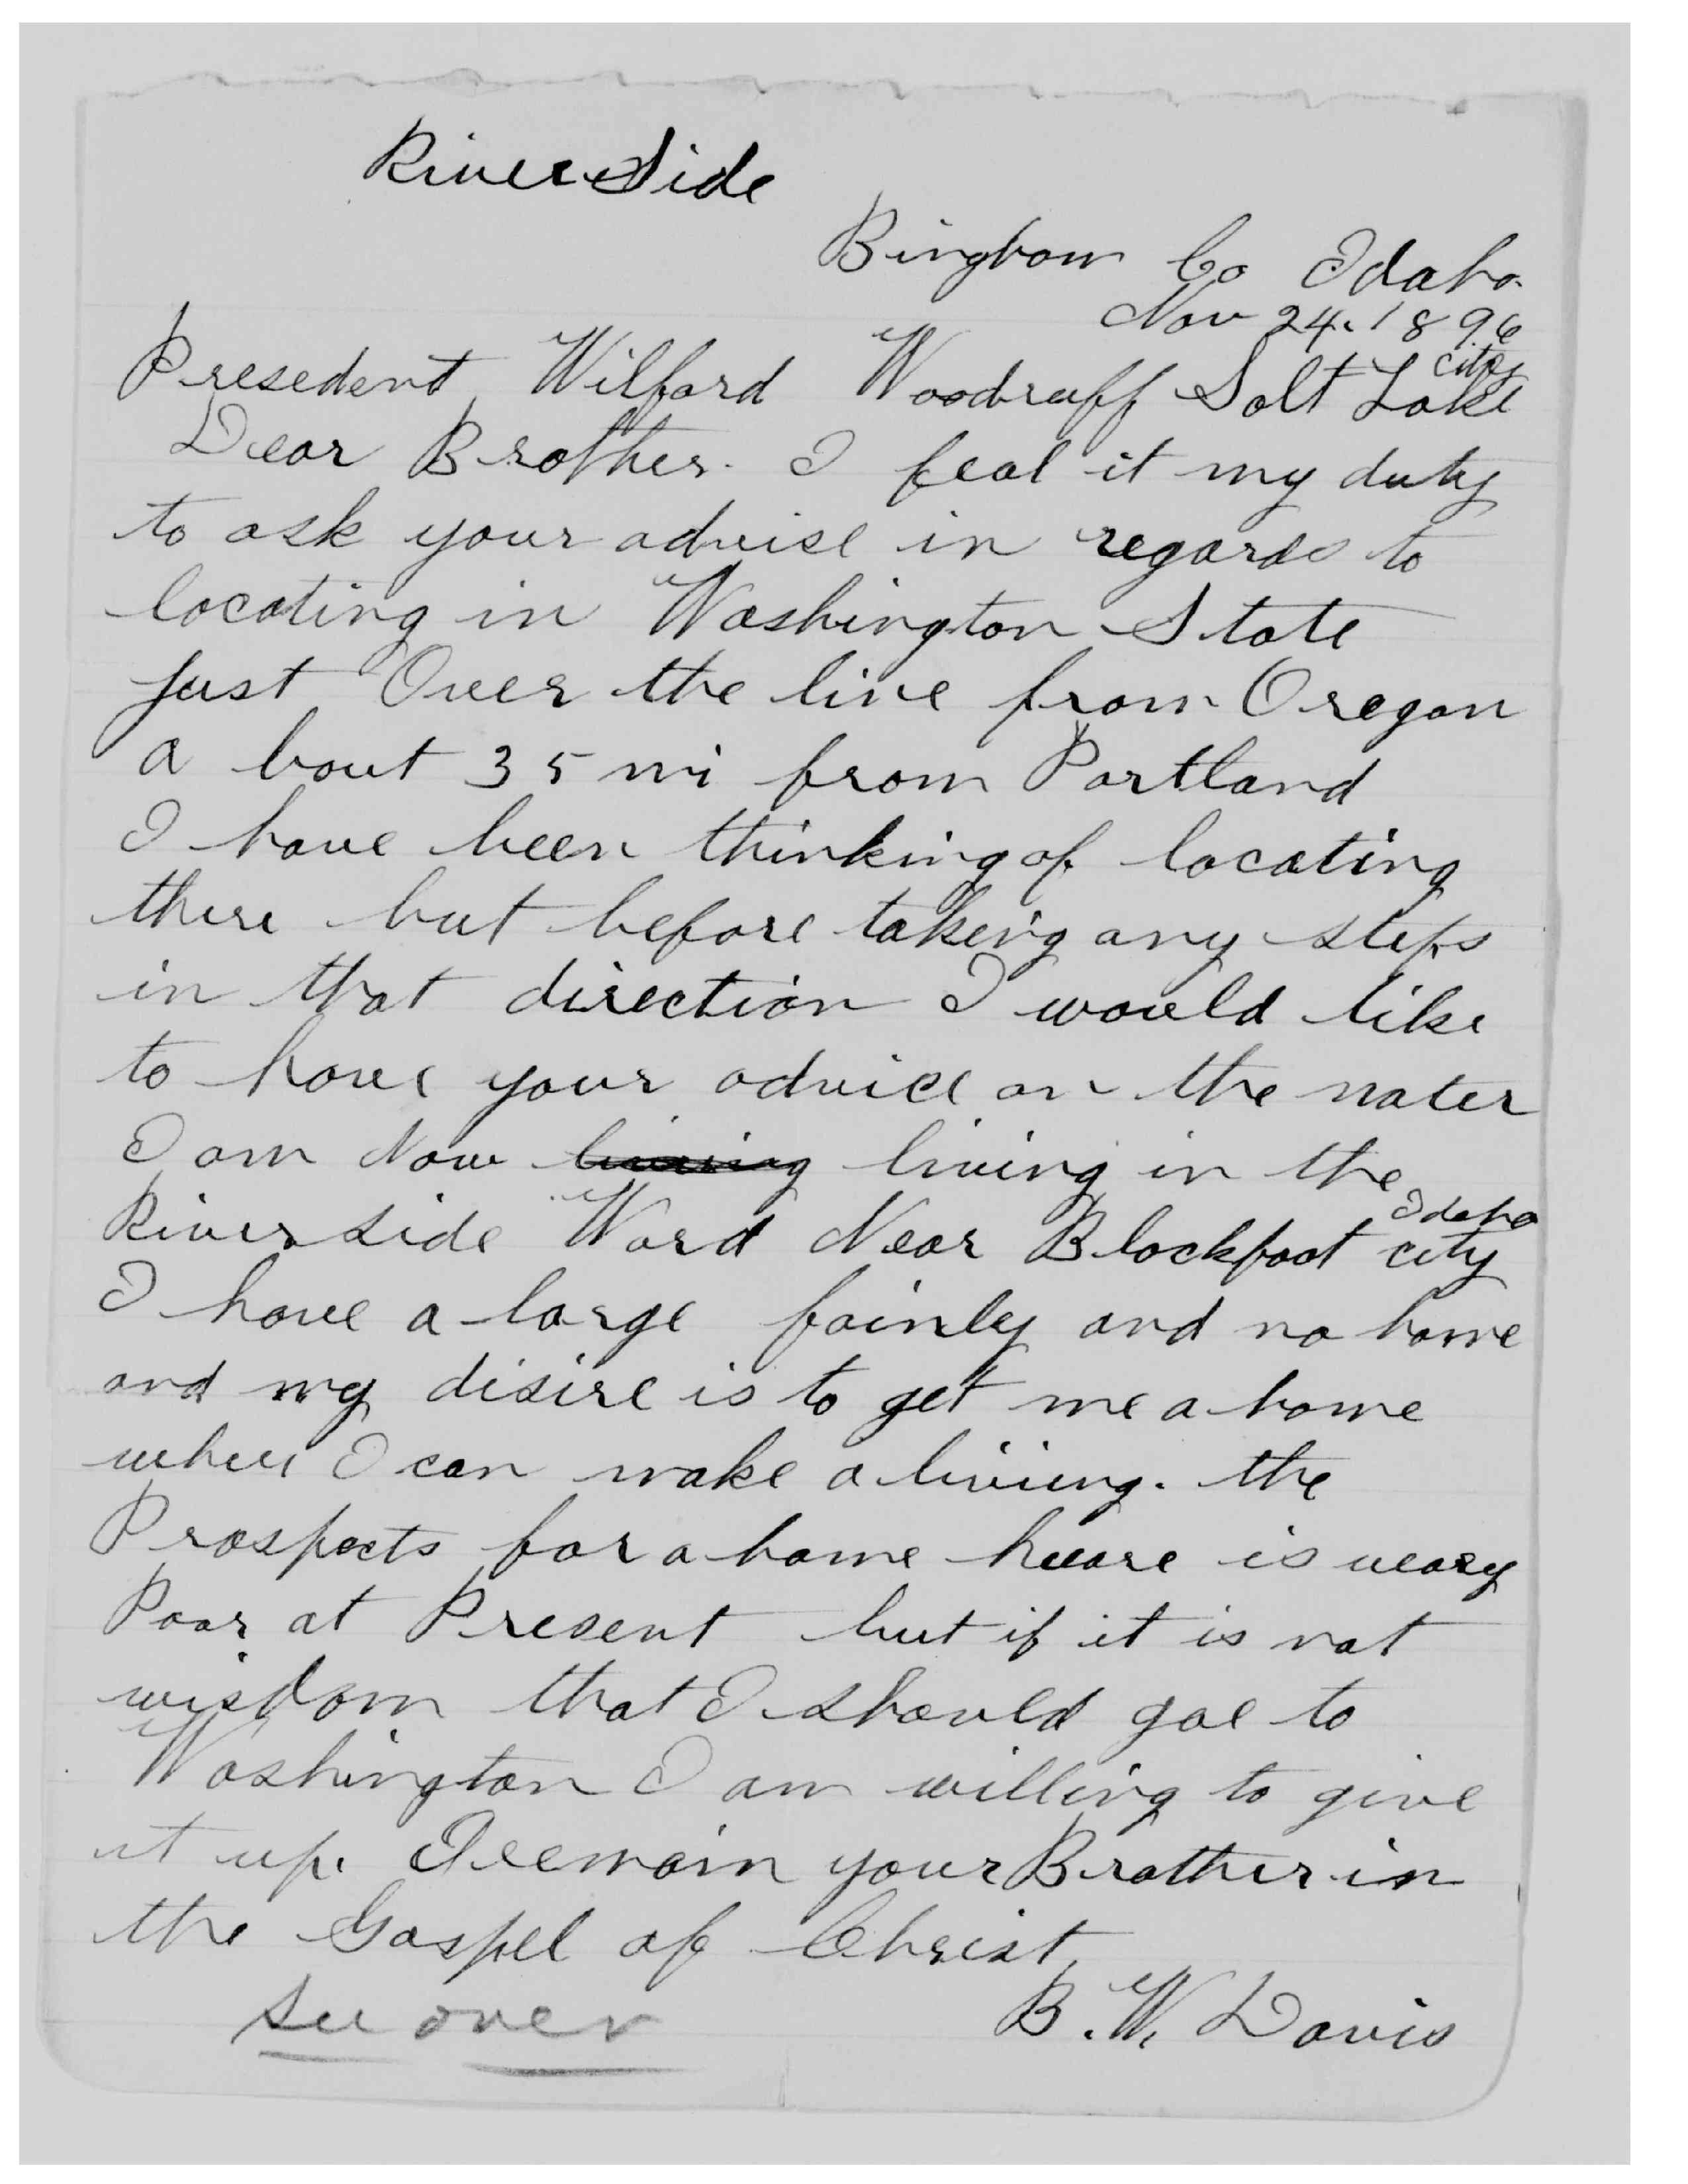 River Side
Bingham Co Idaho.
Nov 24. 1896
Presedent Wilford Woodruff Salt Lake city
Dear Brother. I feal it my duty
to ask your advise in regards to
locating in Washington State
just Over the line from Oregon
a bout 35 mi from Portland
I have been thinking of locating
there but before takeing any steps
in that direction I would like
to have your advice on the mater
I am Now living living in the
River side Ward Near Blackfoot city Idaho
I have a large faimley and no home
and my disire is to get me a home
where I can make a living. the
Prospects for a home heare is veary
Poor at Present but if it is not
wisdom that I should goe to
Washington I am willing to give
it up. I remain your Brother in
the Gospel of Christ,
B. W. Davis
see over